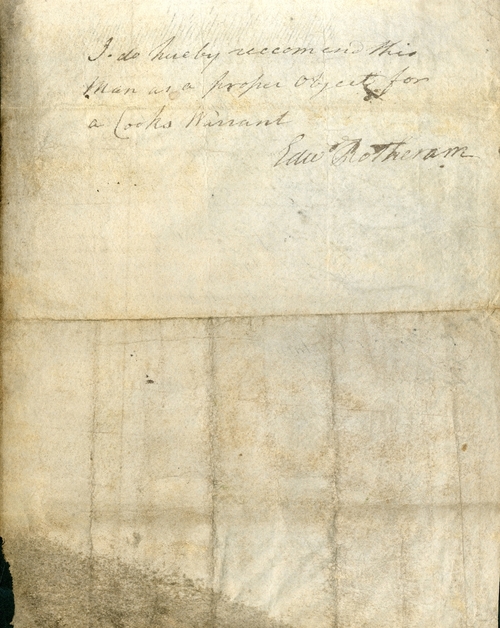 I do hereby reccomend this
Man as a proper Object for
a Cooks Warrant
Edwd Rotheram